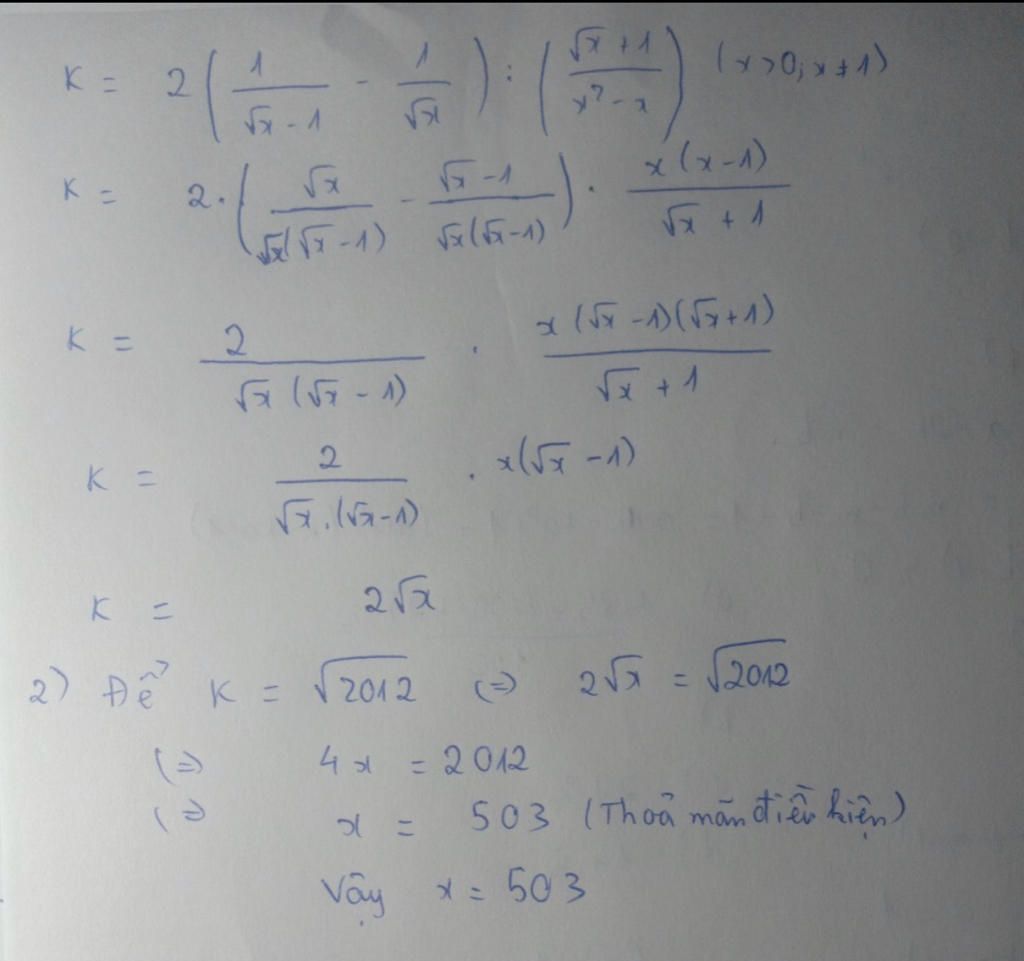 K = 2 ( 1/(√x - 1) - 1/√x ) : ( (√x + 1)/(x² - x) ) (x>0; x≠1)
K = 2. ( √x/(√x(√x - 1)) - (√x - 1)/(√x(√x - 1)) ) . x(x-1)/(√x + 1)
K = 2/(√x (√x - 1)) . x(√x - 1)(√x + 1)/(√x + 1)
K = 2/(√x.(√x-1)) . x(√x - 1)
K = 2√x
2) Để K = √2012 (=) 2√x = √2012
(=) 4x = 2012
(=) x = 503 (Thoả mãn điều kiện)
Vậy x = 503